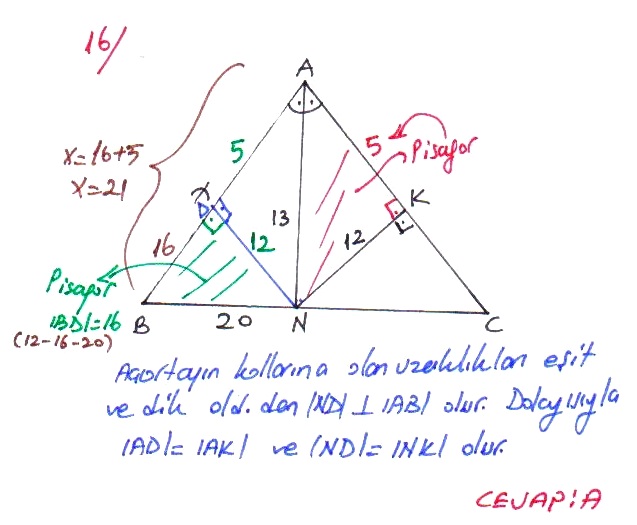 16/
A
x=16+5
x=21
5
5
Pisagor
D
K
16
12
13
12
Pisagor
|BD|=16
(12-16-20)
B
20
N
C
Açıortayın kollarına olan uzaklıkları eşit
ve dik old. den |ND| ⊥ |AB| olur. Dolayısıyla
|AD|= |AK| ve |ND|= |NK| olur.
CEVAP:A